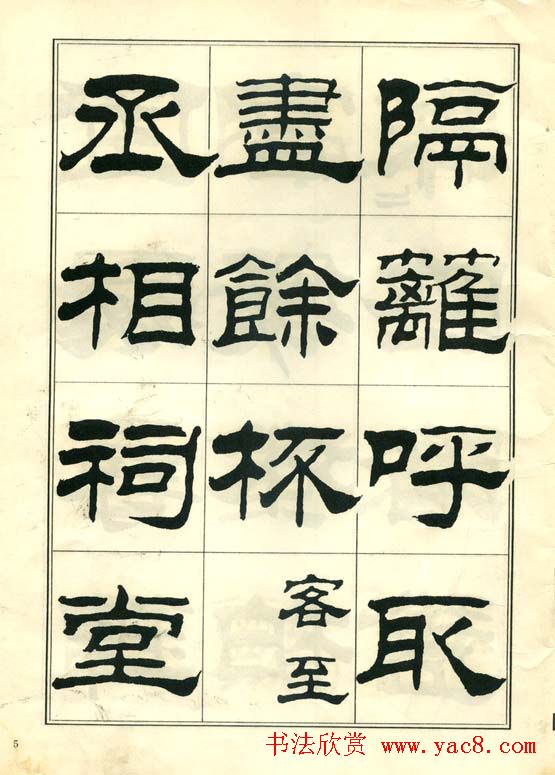 隔籬呼取
盡餘杯客至
丞相祠堂
5
书法欣赏 www.yac8.com